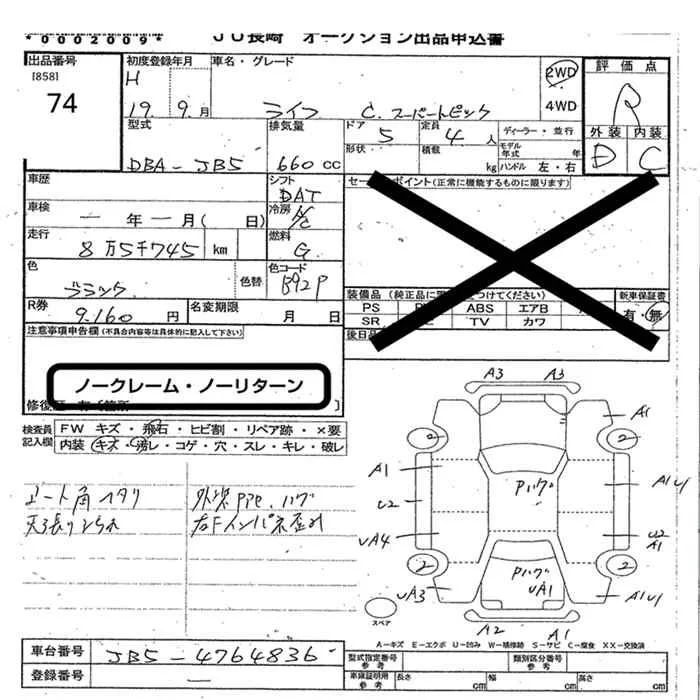 *0002009* JU長崎 オークション出品申込書
出品番号
[858]
74
初度登録年月
H 19. 9. 月
車名・グレード
ライフ C. スーパートピック
2WD
4WD
評価点
R
外装 内装
D C
型式
DBA - JB5
排気量
660 cc
ドア 5
形状
定員 4 人
積載 kg
ディーラー・並行
モデル年式 年
ハンドル 左・右
車歴
シフト
DAT
車検
一 年 一 月( 日)
冷房
A/C
走行
8万5千745 km
燃料
G
色
ブラック
色替
色コード
B92P
R券
9.160 円
名変期限
月 日
セールスポイント(正常に機能するものに限ります)
装備品
PS ABS エアB
SR TV カワ
新車保証書
有・無
後日品
注意事項申告欄(不具合内容等は具体的に記入して下さい)
ノークレーム・ノーリターン
検査員記入欄
FW キズ・飛石・ヒビ割・リペア跡・×要
内装・キズ・汚レ・コゲ・穴・スレ・キレ・破レ
外装
A3 A3
A1
2 2
A1
A1U1
U2
Pハゲ
UA4
U2
A1
Pハゲ
2 2
UA1
UA3
A1U1
A2 A1
スペア
A-キズ E-エクボ U-凹み W-補修跡 S-サビ C-腐食 XX-交換済
車台番号
JB5 - 4764836
登録番号
一
型式指定番号
参考
類別区分番号
参考
車庫証明用
参考
長さ cm
幅 cm
高さ cm